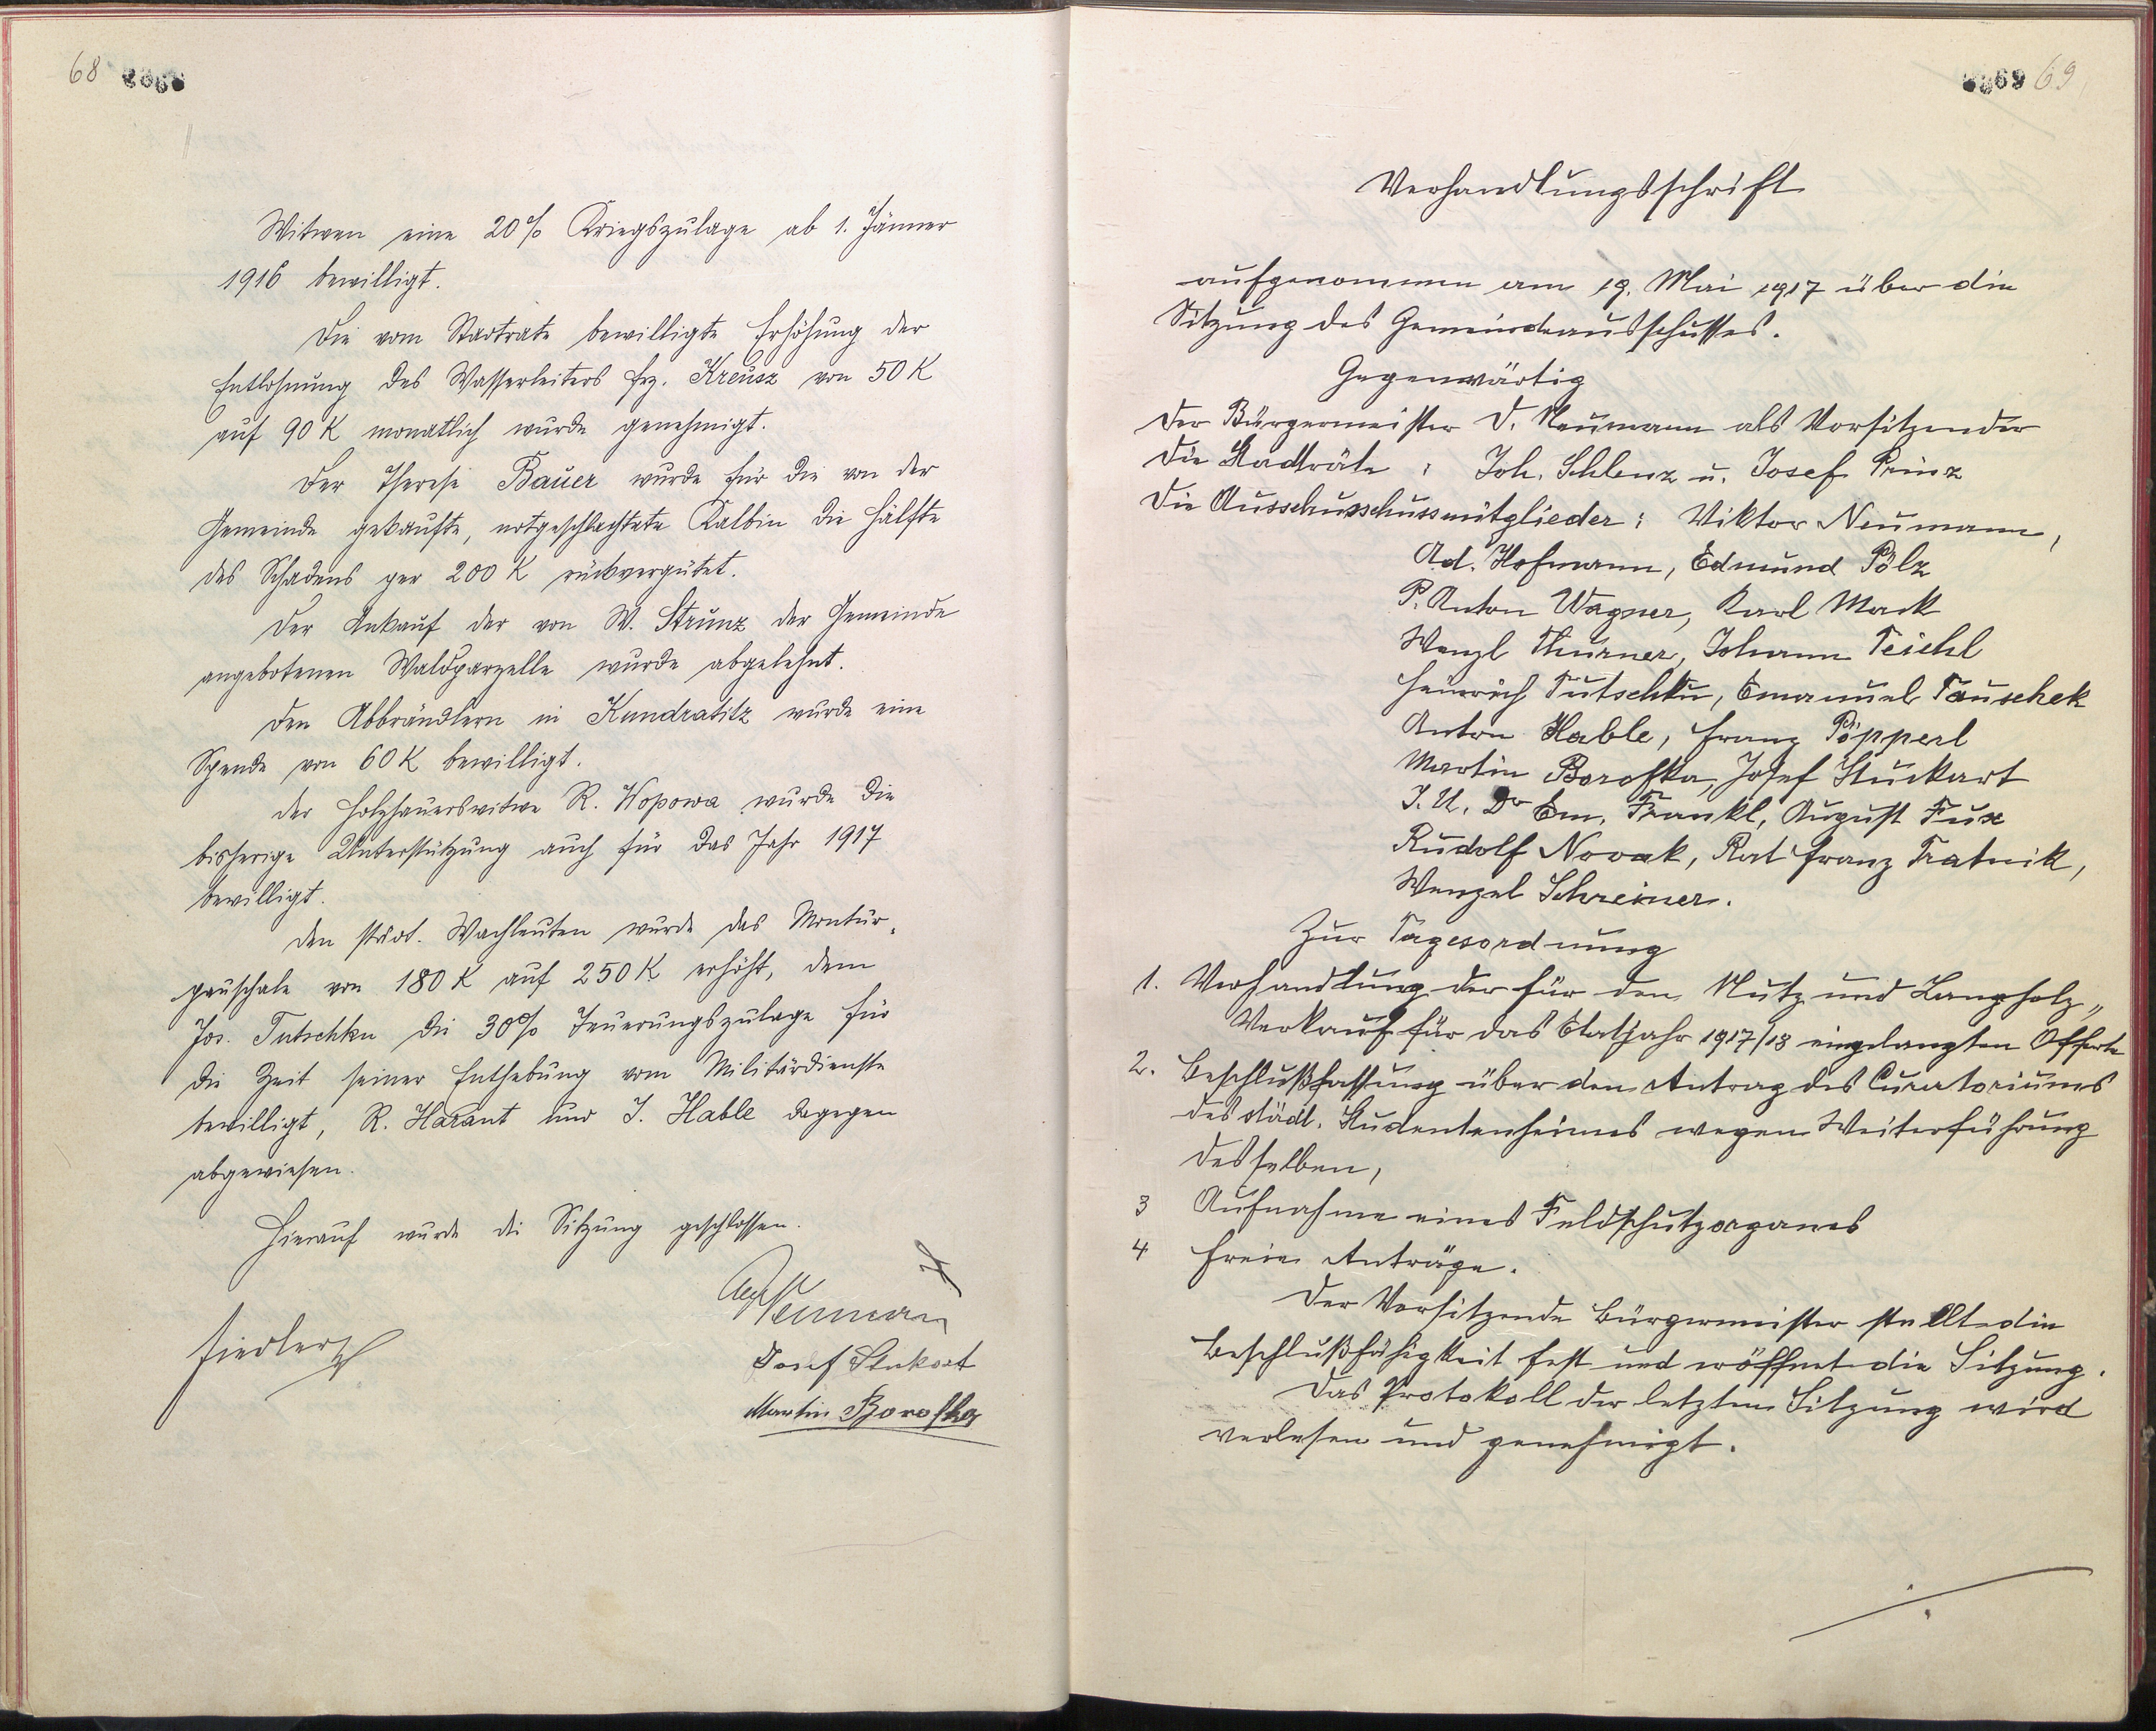 68 0068
Witwen eine 20% Kriegszulage ab 1. Jänner
1916 bewilligt.
Die vom Stadtrate bewilligte Erhöhung der
Entlohnung des Wasserleiters frz. Kreusz von 50 K
auf 90 K monatlich wurde genehmigt.
Der Therese Bauer wurde für die von der
Gemeinde gekaufte, notgeschlachtete Kalbin die Hälfte
des Schadens per 200 K rückvergütet.
Der Ankauf der von W. Strunz der Gemeinde
angebotenen Waldparzelle wurde abgelehnt.
Den Abbrändlern in Kundratitz wurde eine
Spende von 60 K bewilligt.
Der Holzhauerswitwe R. Wopowa wurde die
bisherige Unterstützung auch für das Jahr 1917
bewilligt.
Den städt. Wachleuten wurde das Montur-
pauschale von 180 K auf 250 K erhöht, dem
Jos. Tutschku die 30% Teuerungszulage für
die Zeit seiner Enthebung vom Militärdienste
bewilligt, R. Harant und J. Hable dagegen
abgewiesen.
Hierauf wurde die Sitzung geschlossen.
Neumann
Fiedler
Josef Stukart
Martin Borofka
0069 69
Verhandlungsschrift
aufgenommen am 19. Mai 1917 über die
Sitzung des Gemeindeausschusses.
Gegenwärtig
Der Bürgermeister D. Neumann als Vorsitzender
Die Stadträte : Joh. Schlenz u. Josef Prinz
Die Ausschusschussmitglieder : Viktor Neumann,
Ad. Hofmann, Edmund Pölz
P. Anton Wagner, Karl Mack
Wenzl Thurner, Johann Teichl
Heinrich Tutschku, Emanuel Tauschek
Anton Hable, Franz Pöpperl
Martin Borofka, Josef Stuckart
J. U. Dr Em. Frankl, August Fux
Rudolf Novak, Rat Franz Tratnik,
Wenzel Schreiner.
Zur Tagesordnung
1. Verhandlung der für den Nutz und Langholz„
Verkauf für das Etatjahr 1917/18 eingelangten Offerte
2. Beschlußfassung über den Antrag des Curatoriums
des städt. Studentenheimes wegen Weiterführung
desselben,
3 Aufnahme eines Feldschutzorganes
4 Freie Anträge.
Der Vorsitzende Bürgermeister stellte die
Beschlußfähigkeit fest und eröffnet die Sitzung.
Das Protokoll der letzten Sitzung wird
verlesen und genehmigt.